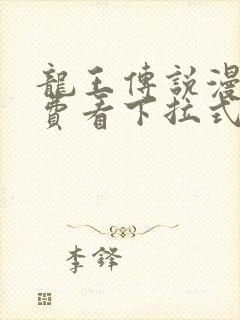 龍王傳說漫
費看下拉式
李鋒